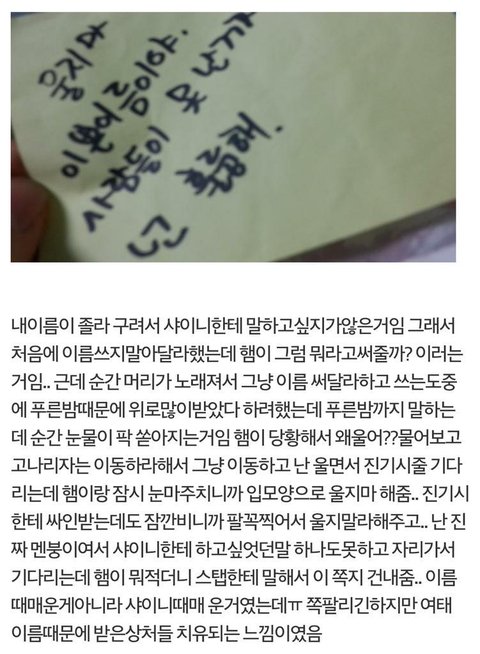 울지마
이쁜이름이야.
사람들이 못난거
훌륭해.
내이름이 졸라 구려서 샤이니한테 말하고싶지가않은거임 그래서
처음에 이름쓰지말아달라했는데 햄이 그럼 뭐라고써줄까? 이러는
거임.. 근데 순간 머리가 노래져서 그냥 이름 써달라하고 쓰는도중
에 푸른밤때문에 위로많이받았다 하려했는데 푸른밤까지 말하는
데 순간 눈물이 팍 쏟아지는거임 햄이 당황해서 왜울어??물어보고
고나리자는 이동하라해서 그냥 이동하고 난 울면서 진기시줄 기다
리는데 햄이랑 잠시 눈마주치니까 입모양으로 울지마 해줌.. 진기시
한테 싸인받는데도 잠깐비니까 팔꼭찍어서 울지말라해주고.. 난 진
짜 멘붕이여서 샤이니한테 하고싶엇던말 하나도못하고 자리가서
기다리는데 햄이 뭐적더니 스탭한테 말해서 이 쪽지 건내줌.. 이름
때매운게아니라 샤이니때매 운거였는데ㅠ 쪽팔리긴하지만 여태
이름때문에 받은상처들 치유되는 느낌이였음